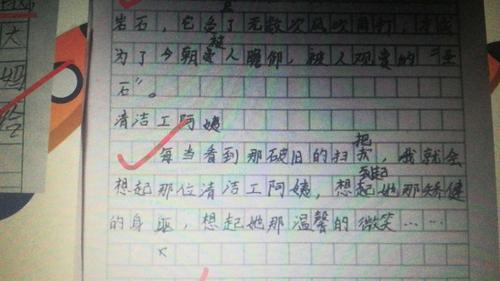 岩石，它了无数次风吹雨打，才成
被
为了今朝人瞻仰，被人观赏的“
石”。
清洁工阿姨
把
每当看到那破旧的扫，我就会
想起那位清洁工阿姨，想起她那矫健
的身，想起她那温馨的微笑……